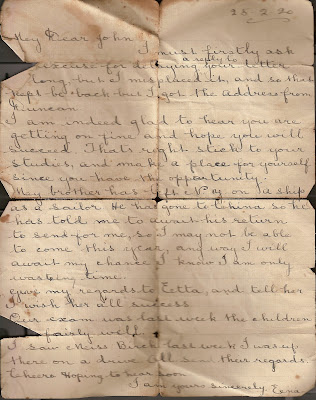 25. 2. 20
My Dear John
I must firstly ask
a reply to
excuse for delaying your letter
long but I misplaced it, and so that
kept be back but I got the address from
Duncan
I am indeed glad to hear you are
getting on fine and hope you will
succeed. That's right stick to your
studies, and make a place for yourself
since you have the opportunity.
My brother has left N.Y on a ship
as a sailor He has gone to China so he
has told me to await his return
to send for me, so I may not be able
to come this year, any way I will
await my chance I know I am only
wasting time.
Give my regards to Etta, and tell her
I wish her all success
Our exam was last week the children
did fairly well.
I saw Miss Birch last week I was up
there on a drive all send their regards.
Cheero Hoping to hear soon
I am yours sincerely Edna